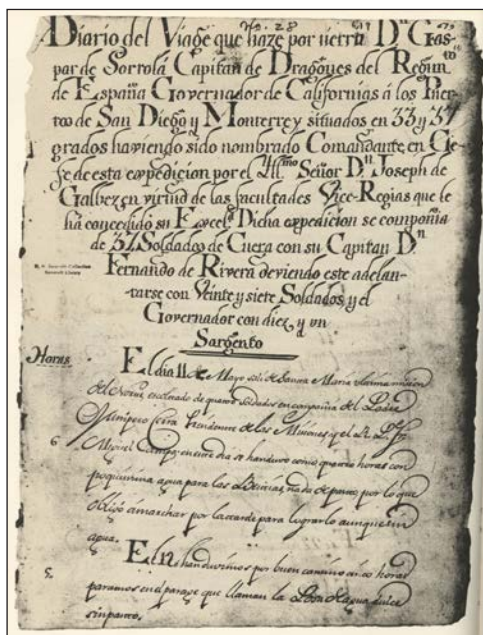 No. 28
Diario del Viage que haze por tierra Dn. Gas-
par de Portolá Capitan de Dragones del Regimto.
de España Governador de Californias á los Puer-
tos de San Diego y Monterrey situados en 33 y 37
grados haviendo sido nombrado Comandante en Ge-
fe de esta expedicion por el Yllmo. Señor Dn. Joseph de
Galvez en virtud de las facultades Vice-Regias que le
ha concedido su Excela. Dicha expedicion se componia
de 37 Soldados de Cuera con su Capitan Dn.
Fernando de Rivera deviendo este adelan-
tarse con Veinte y siete Soldados y el
Governador con diez y un
Sargento
Horas
El dia 11 de Mayo sali de Santa Maria ultima mision
del Norte escoltado de quatro Soldados en compañia del Padre
Junipero Serra Presidente de las Misiones y el R. P. Fr.
6 Miguel Campa; en este dia se handuvo como quatro horas con
poquisima agua para las Bestias, nada de pasto por lo que
obligó á marchar por la tarde para lograrlo aunque sin
agua.
El 12 handuvimos por buen camino cinco horas
5 paramos en el parage que llaman la Poza de agua dulce
sin pasto.